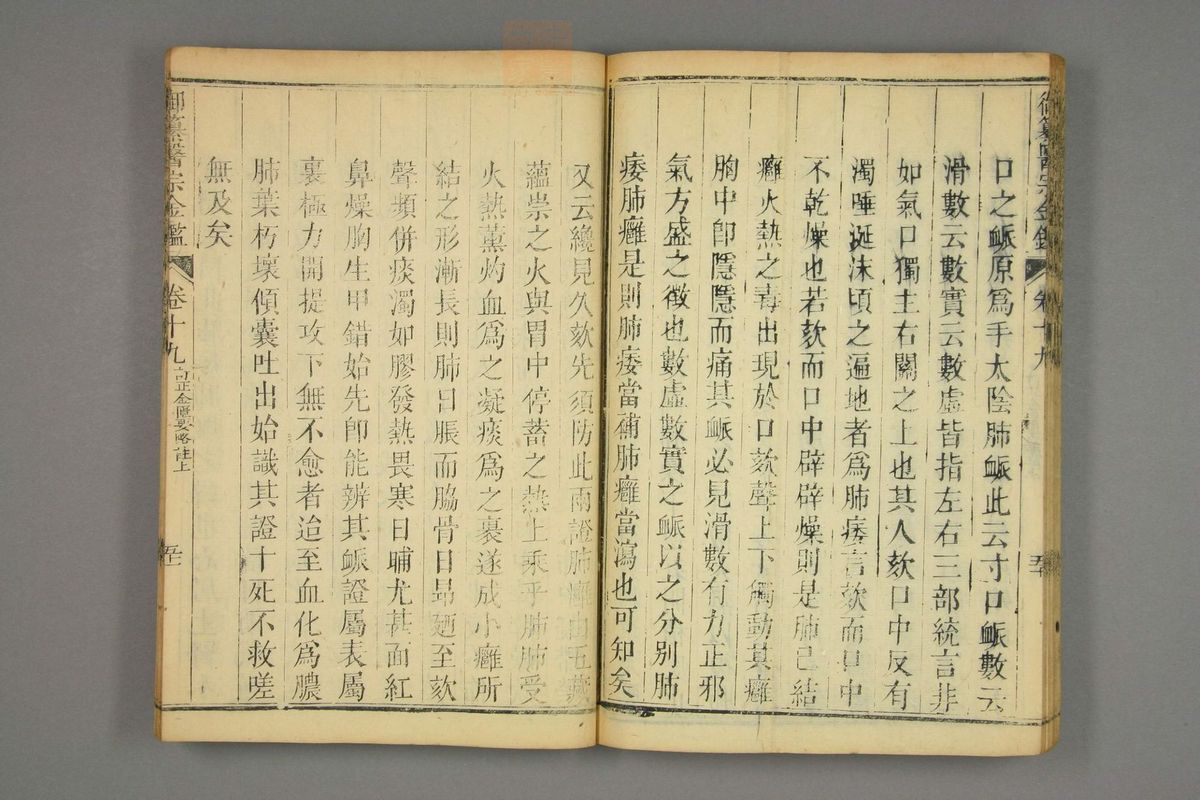 口之衇原爲手太陰肺衇此云寸口衇數云
滑數云數實云數虛皆指左右三部統言非
如氣口獨主右關之上也其人欬口中反有
濁唾涎沫頃之遍地者爲肺痿言欬而口中
不乾燥也若欬而口中辟辟燥則是肺已結
癰火熱之毒出現於口欬聲上下觸動其癰
胸中卽隱隱而痛其衇必見滑數有力正邪
氣方盛之徵也數虛數實之衇以之分別肺
痿肺癰是則肺痿當補肺癰當瀉也可知矣
又云纔見久欬先須防此兩證肺癰由五藏
蘊崇之火與胃中停蓄之熱上乘乎肺肺受
火熱薰灼血爲之凝痰爲之裹遂成小癰所
結之形漸長則肺日脹而脇骨日昂廼至欬
聲頻併痰濁如膠發熱畏寒日晡尤甚面紅
鼻燥胸生甲錯始先卽能辨其衇證屬表屬
裏極力開提攻下無不愈者迨至血化爲膿
肺葉朽壞傾囊吐出始識其證十死不救嗟
無及矣
御纂醫宗金鑑
卷十九
訂正金匱要略註上